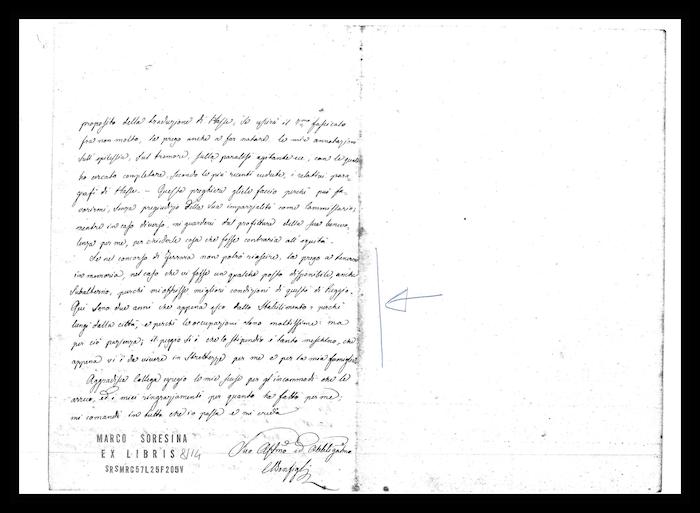 proposito della traduzione di Hasse. Se uscirà il fascicolo
fra non molto, la prego anche a far notare le mie annotazioni
sull'epilessia, sul tremore, sulla paralisi agitante ecc, con le quali
ho cercato completare, secondo le più recenti vedute, i relativi para
grafi di Hasse. — Questa preghiera gliela faccio perchè può fa
vorirmi, senza pregiudizio della sua imparzialità come Commissario;
mentre in caso diverso, mi guarderei dal profittare della sua benevo
lenza per me, per chiederle cosa che fosse contraria all'equità.
Se nel concorso di Ferrara non potrò riuscire, la prego a tenermi
in memoria, nel caso che vi fosse un qualche posto disponibile, anche
subalterno, purchè mi offrisse migliori condizioni di questo di Reggio.
Qui sono due anni che appena esco dallo Stabilimento, perchè
lungi dalla città, e perchè le occupazioni sono moltissime: ma
per ciò pazienza; il peggio si è che lo stipendio è tanto meschino, che
appena vi è da vivere in strettezze per me e per la mia famiglia.
Aggradisca Collega egregio le mie scuse per gl'incomodi che le
arreco, ed i miei ringraziamenti per quanto ha fatto per me;
mi comandi in tutto che io possa e mi creda
Suo Affmo ed Obbligatmo
CBonfigli
MARCO SORESINA
EX LIBRIS 8/14
SRSMRC57L25F205V